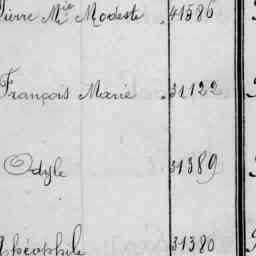 Pierre Mie Modeste 41586
François Marie 31122
Odyle 31389
Théophile 31380